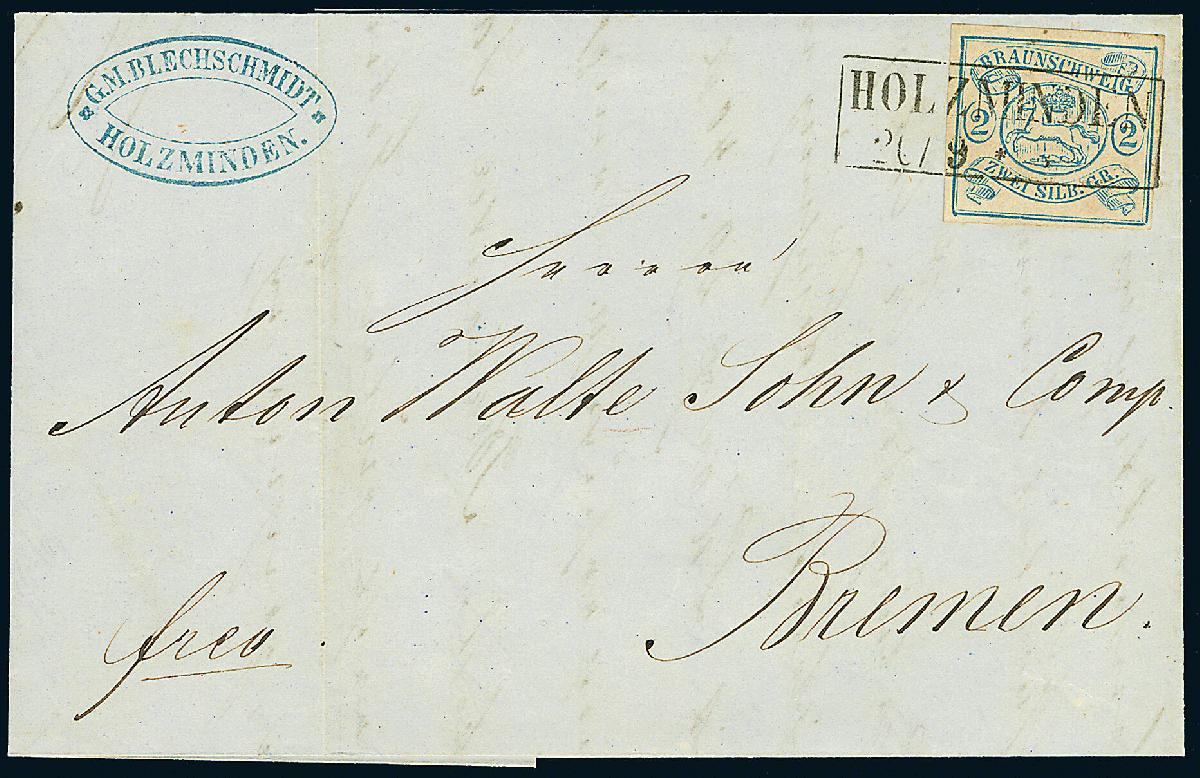 G.M.BLECHSCHMIDT
HOLZMINDEN.
BRAUNSCHWEIG.
2 2
ZWEI SILB. GR.
HOLZMINDEN
9 *
Herren
Anton Walte Sohn & Comp.
Bremen.
frco.